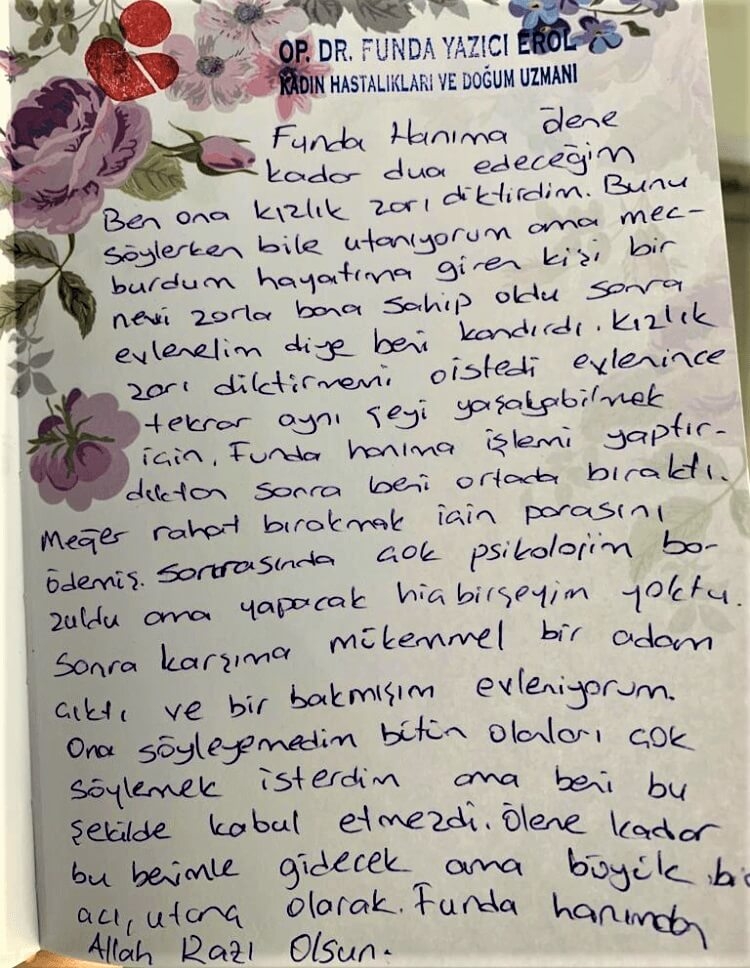 OP. DR. FUNDA YAZICI EROL
KADIN HASTALIKLARI VE DOĞUM UZMANI
Funda Hanıma ölene
kadar dua edeceğim
Ben ona kızlık zarı diktirdim. Bunu
söylerken bile utanıyorum ama mec-
burdum hayatıma giren kişi bir
nevi zorla bana sahip oldu sonra
evlenelim diye beni kandırdı. Kızlık
zarı diktirmemi o istedi evlenince
tekrar aynı şeyi yaşayabilmek
için. Funda hanıma işlemi yaptır-
dıktan sonra beni ortada bıraktı.
Meğer rahat bırakmak için parasını
ödemiş. Sonrasında çok psikolojim bo-
zuldu ama yapacak hiçbirşeyim yoktu.
Sonra karşıma mükemmel bir adam
çıktı ve bir bakmışım evleniyorum.
Ona söyleyemedim bütün olanları çok
söylemek isterdim ama beni bu
şekilde kabul etmezdi. Ölene kadar
bu benimle gidecek ama büyük bi
acı, utanç olarak. Funda hanımdan
Allah Razı Olsun.